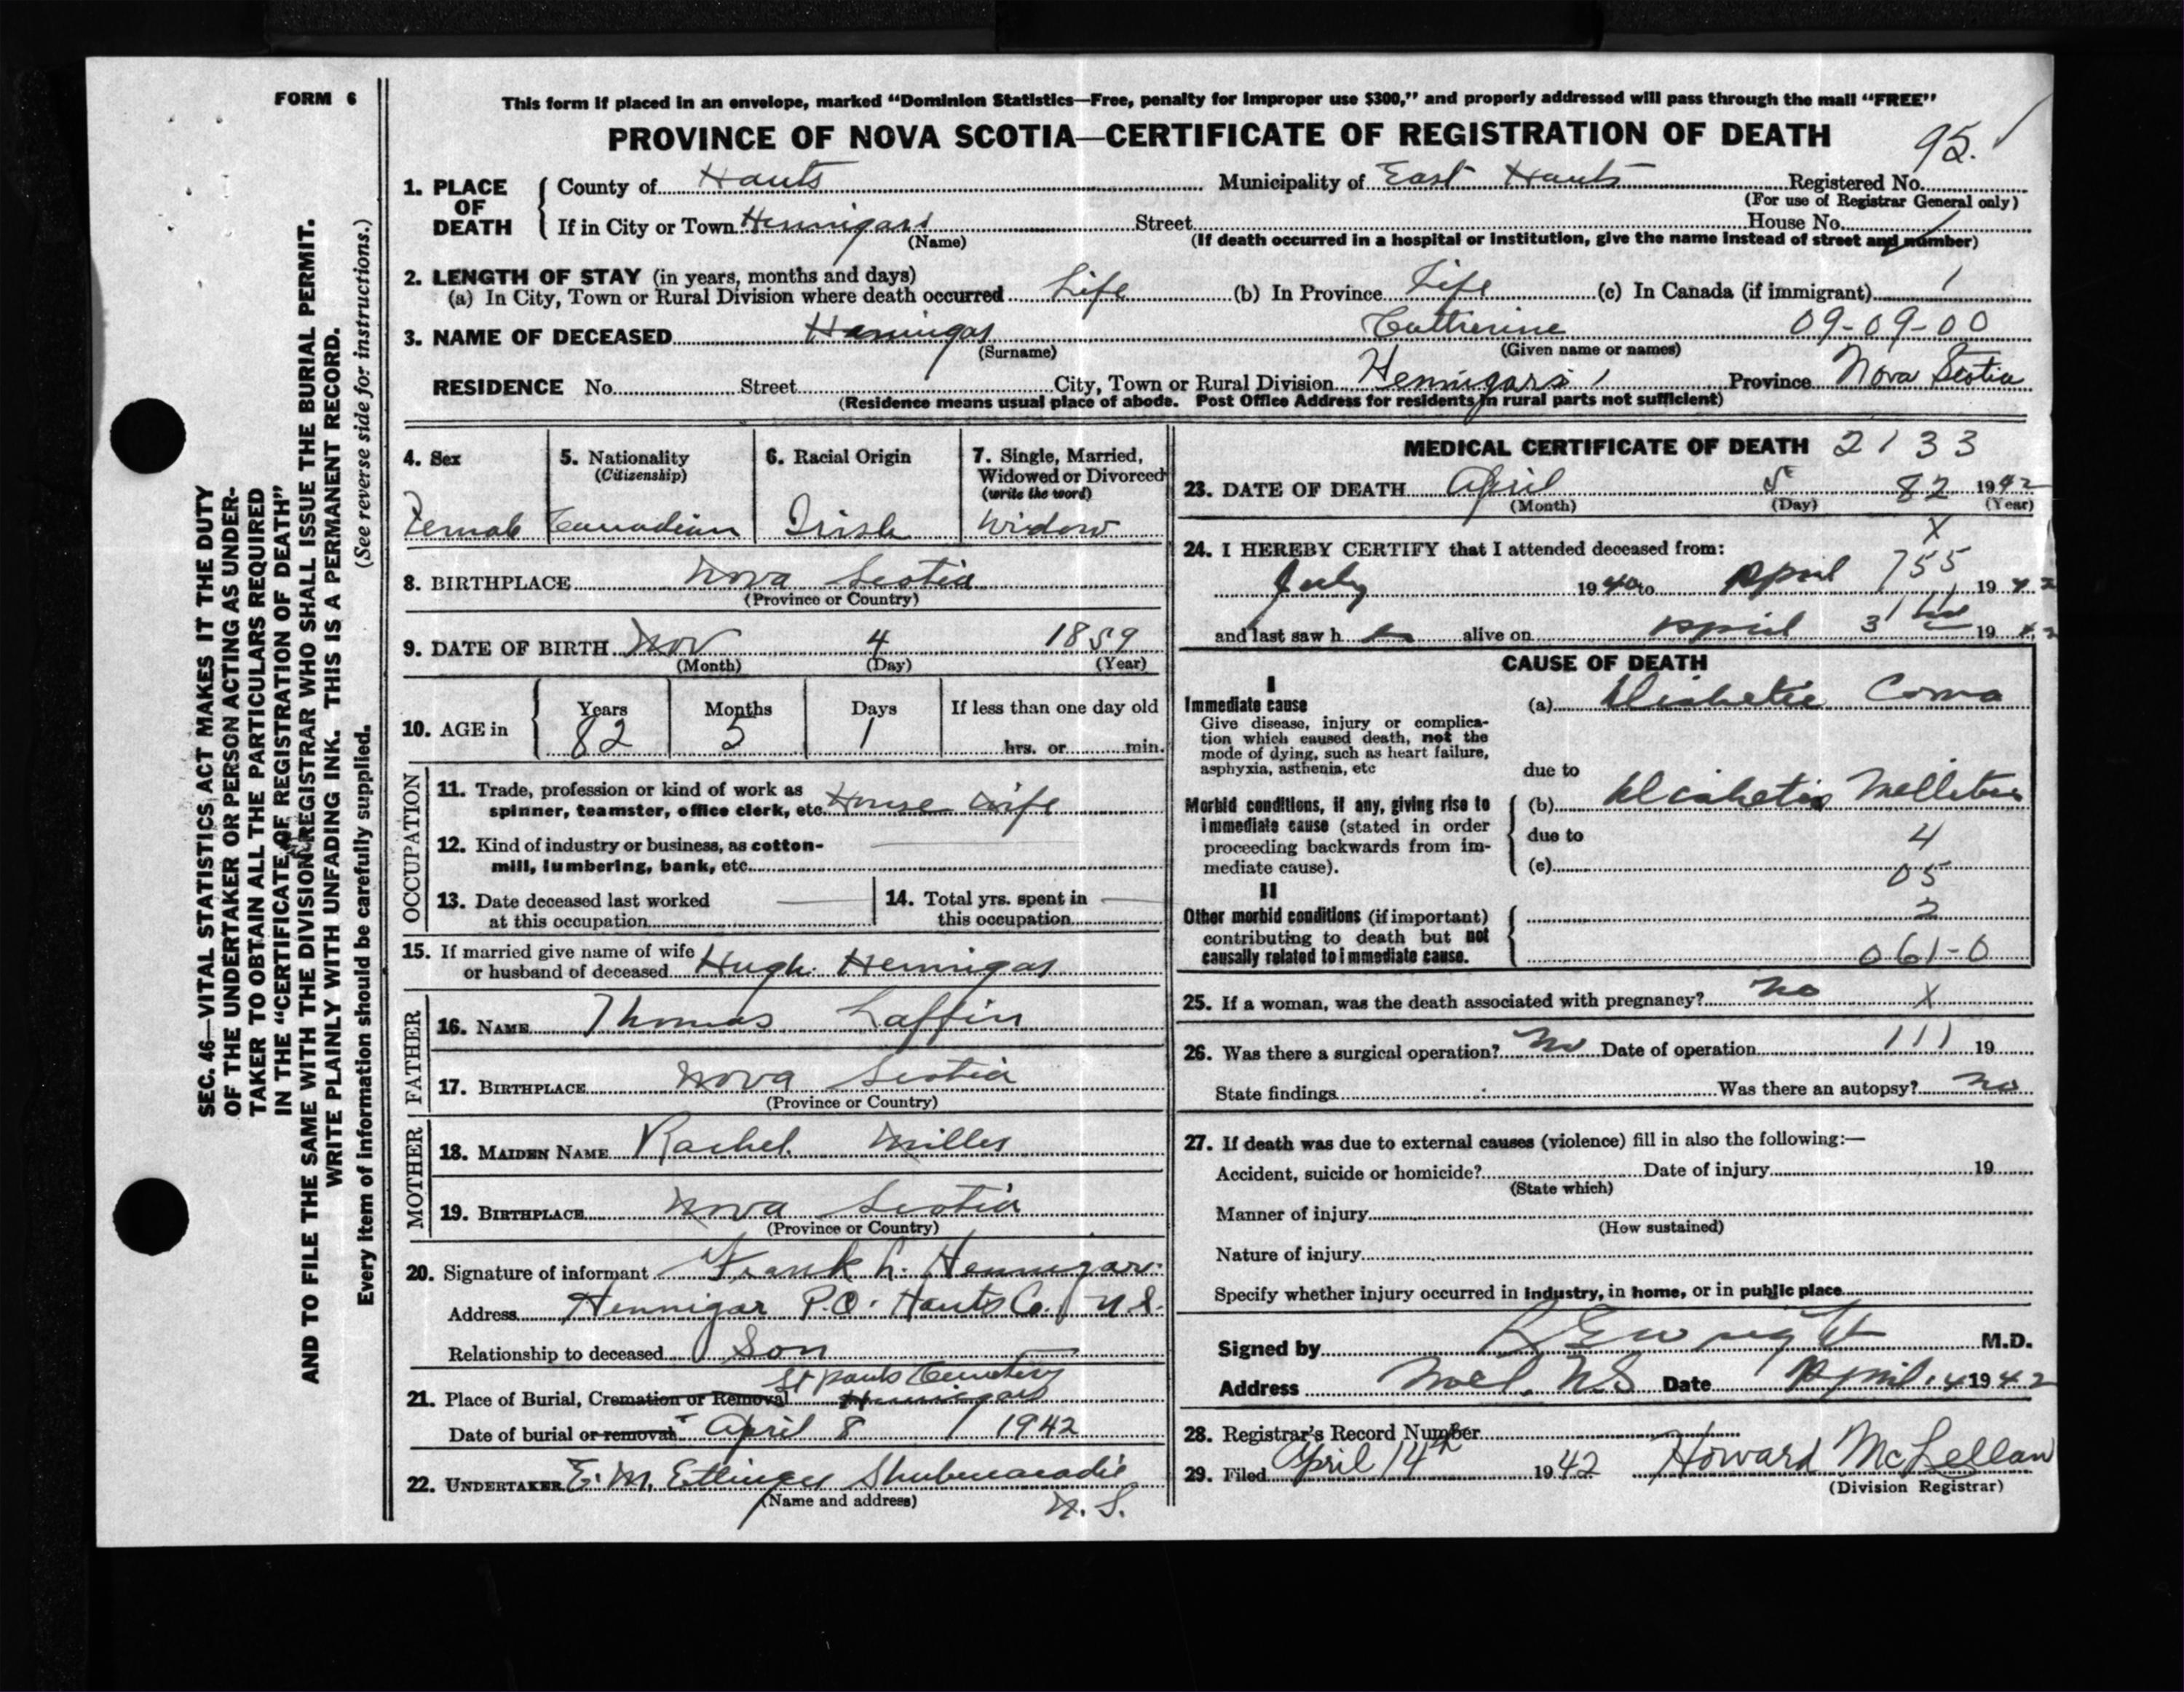 FORM 6
This form if placed in an envelope, marked “Dominion Statistics—Free, penalty for improper use $300,” and properly addressed will pass through the mail “FREE”
PROVINCE OF NOVA SCOTIA—CERTIFICATE OF REGISTRATION OF DEATH
95.
1. PLACE OF DEATH County of Hants Municipality of East Hants Registered No.
(For use of Registrar General only)
If in City or Town Hennigars Street House No.
(Name) (If death occurred in a hospital or institution, give the name instead of street and number)
2. LENGTH OF STAY (in years, months and days)
(a) In City, Town or Rural Division where death occurred Life (b) In Province Life (c) In Canada (if immigrant)
3. NAME OF DECEASED Hennigar Catherine 09-09-00
(Surname) (Given name or names)
RESIDENCE No. Street City, Town or Rural Division Hennigars Province Nova Scotia
(Residence means usual place of abode. Post Office Address for residents in rural parts not sufficient)
4. Sex 5. Nationality 6. Racial Origin 7. Single, Married,
(Citizenship) Widowed or Divorced
(write the word)
Female Canadian Irish Widow
8. BIRTHPLACE Nova Scotia
(Province or Country)
9. DATE OF BIRTH Nov 4 1859
(Month) (Day) (Year)
10. AGE in Years Months Days If less than one day old
82 5 1 hrs. or min.
OCCUPATION
11. Trade, profession or kind of work as
spinner, teamster, office clerk, etc. House wife
12. Kind of industry or business, as cotton-
mill, lumbering, bank, etc.
13. Date deceased last worked 14. Total yrs. spent in
at this occupation this occupation
15. If married give name of wife
or husband of deceased Hugh Hennigar
FATHER
16. NAME Thomas Laffin
17. BIRTHPLACE Nova Scotia
(Province or Country)
MOTHER
18. MAIDEN NAME Rachel Miller
19. BIRTHPLACE Nova Scotia
(Province or Country)
20. Signature of informant Frank L. Hennigar
Address Hennigar P.O. Hants Co. N.S.
Relationship to deceased Son
St Pauls Cemetery
21. Place of Burial, Cremation or Removal Hennigars
Date of burial or removal April 8 1942
22. UNDERTAKER E. M. Ettinger Shubenacadie
(Name and address) N. S.
MEDICAL CERTIFICATE OF DEATH 2133
23. DATE OF DEATH April 5 82 1942
(Month) (Day) (Year)
X
24. I HEREBY CERTIFY that I attended deceased from:
July 1940 to April 755 1942
and last saw her alive on April 3 1942
CAUSE OF DEATH
I
Immediate cause (a) Diabetic Coma
Give disease, injury or complica-
tion which caused death, not the
mode of dying, such as heart failure,
asphyxia, asthenia, etc due to
Morbid conditions, if any, giving rise to (b) Diabetes Mellitus
immediate cause (stated in order due to 4
proceeding backwards from im-
mediate cause). (c) 05
II
Other morbid conditions (if important) 2
contributing to death but not
causally related to immediate cause. 061-0
25. If a woman, was the death associated with pregnancy? No X
26. Was there a surgical operation? No Date of operation 111 19
State findings Was there an autopsy? No
27. If death was due to external causes (violence) fill in also the following:—
Accident, suicide or homicide? Date of injury 19
(State which)
Manner of injury
(How sustained)
Nature of injury
Specify whether injury occurred in industry, in home, or in public place
Signed by Wright M.D.
Address Noel. N.S Date April 4 1942
28. Registrar's Record Number
29. Filed April 14th 1942 Howard McLellan
(Division Registrar)
SEC. 46—VITAL STATISTICS ACT MAKES IT THE DUTY
OF THE UNDERTAKER OR PERSON ACTING AS UNDER-
TAKER TO OBTAIN ALL THE PARTICULARS REQUIRED
IN THE “CERTIFICATE OF REGISTRATION OF DEATH”
AND TO FILE THE SAME WITH THE DIVISION REGISTRAR WHO SHALL ISSUE THE BURIAL PERMIT.
WRITE PLAINLY WITH UNFADING INK. THIS IS A PERMANENT RECORD.
Every item of information should be carefully supplied. (See reverse side for instructions.)